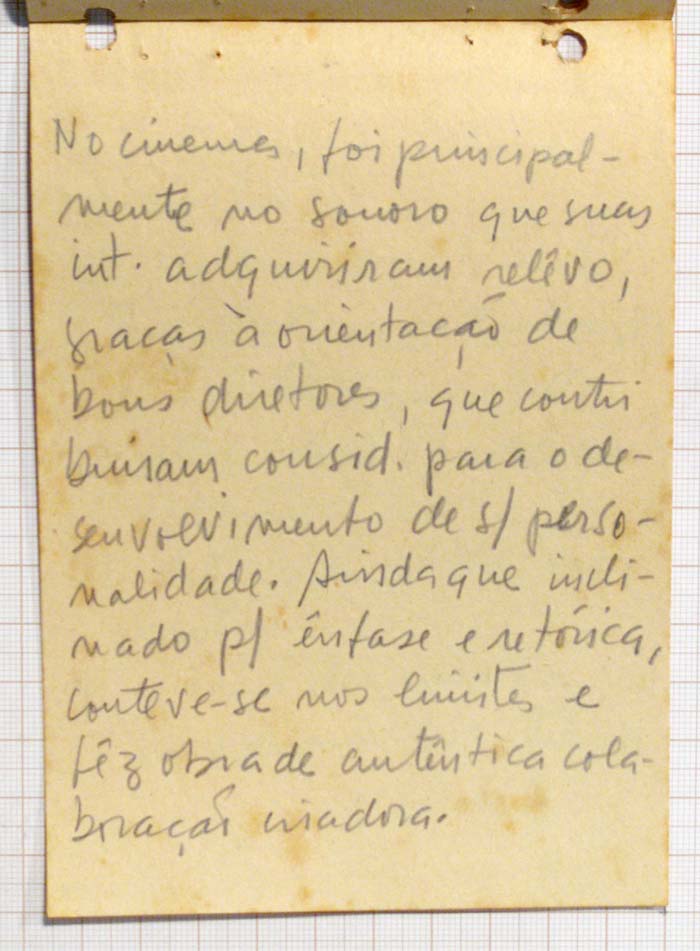 No cinema, foi principal-
mente no sonoro que suas
int. adquiriram relêvo,
graças à orientação de
bons diretores, que contri
buiram consid. para o de-
senvolvimento de s/ perso-
nalidade. Ainda que incli-
nado p/ ênfase e retórica,
conteve-se nos limites e
fêz obra de autêntica cola-
boração criadora.